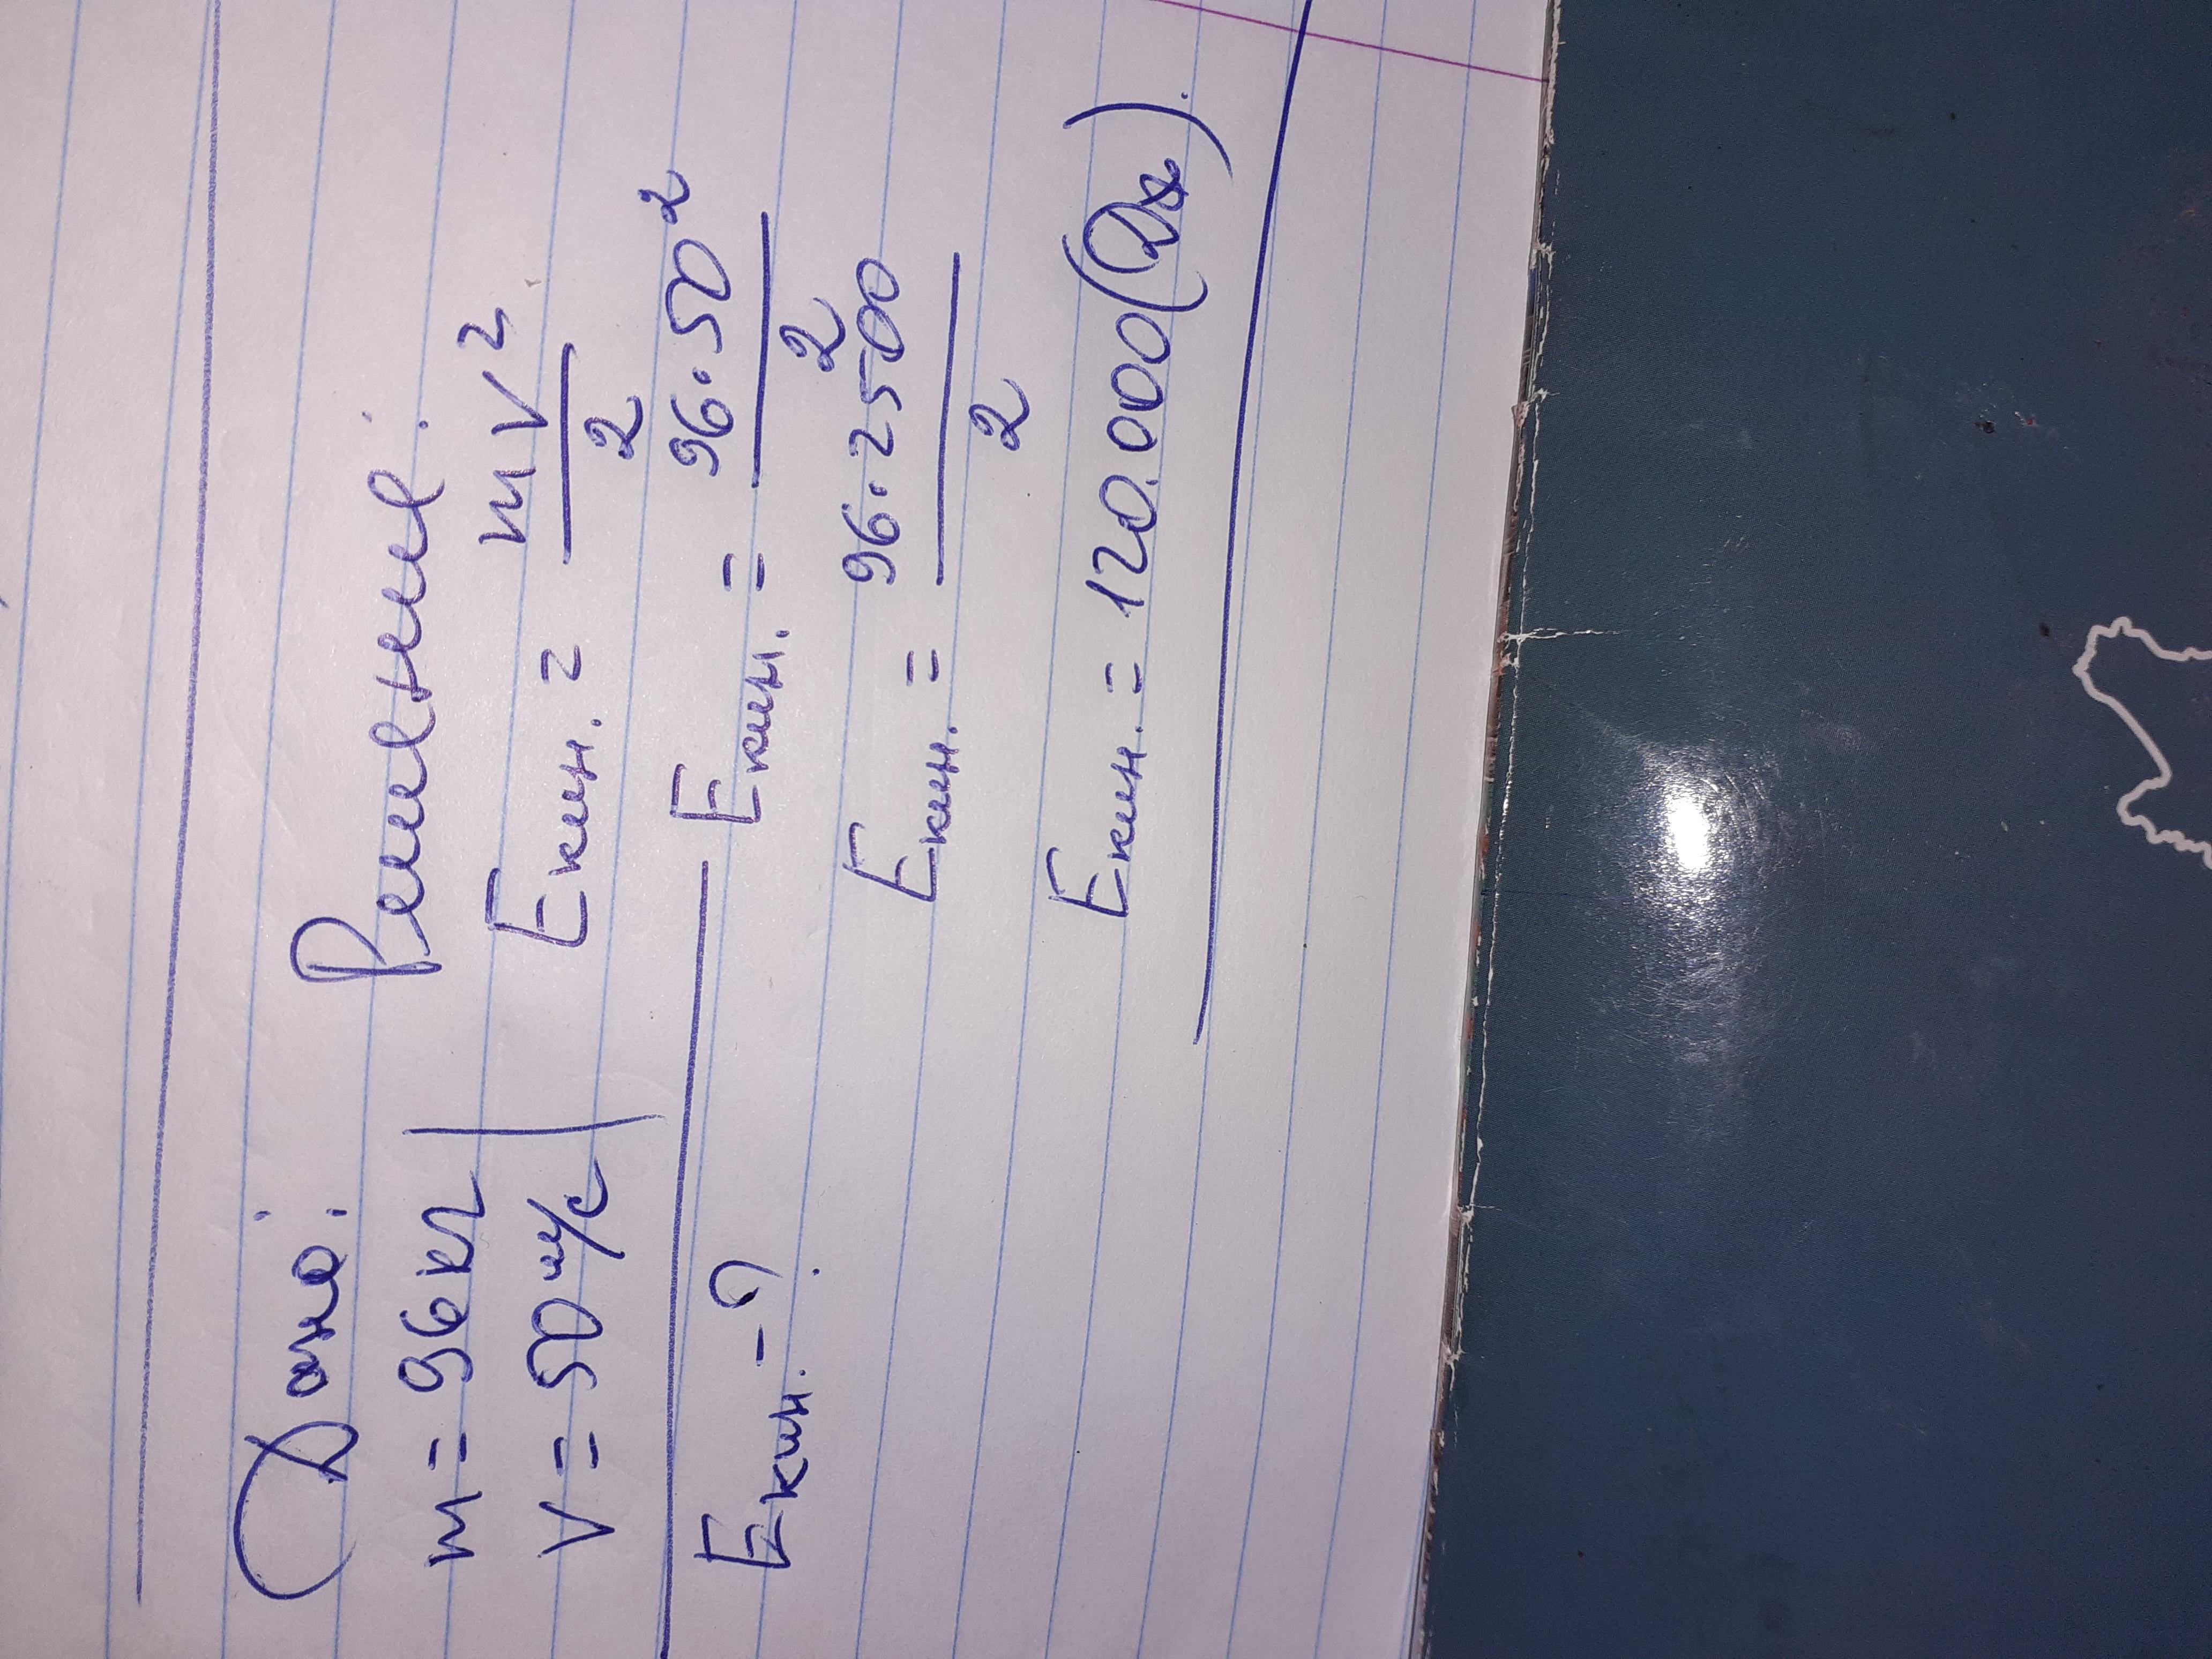 Дано:
m = 96 кг
V = 50 м/с
Eкин. - ?
Решение:
Eкин. = mV²/2
Eкин. = 96·50²/2
Eкин. = 96·2500/2
Eкин. = 120.000 (Дж).